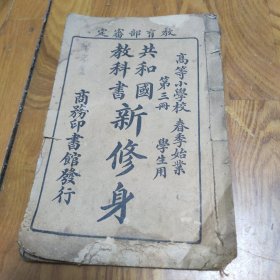 定審部育教
高等小學校 春季始業
第三冊 學生用
共和國
教科書
新修身
商務印書館發行